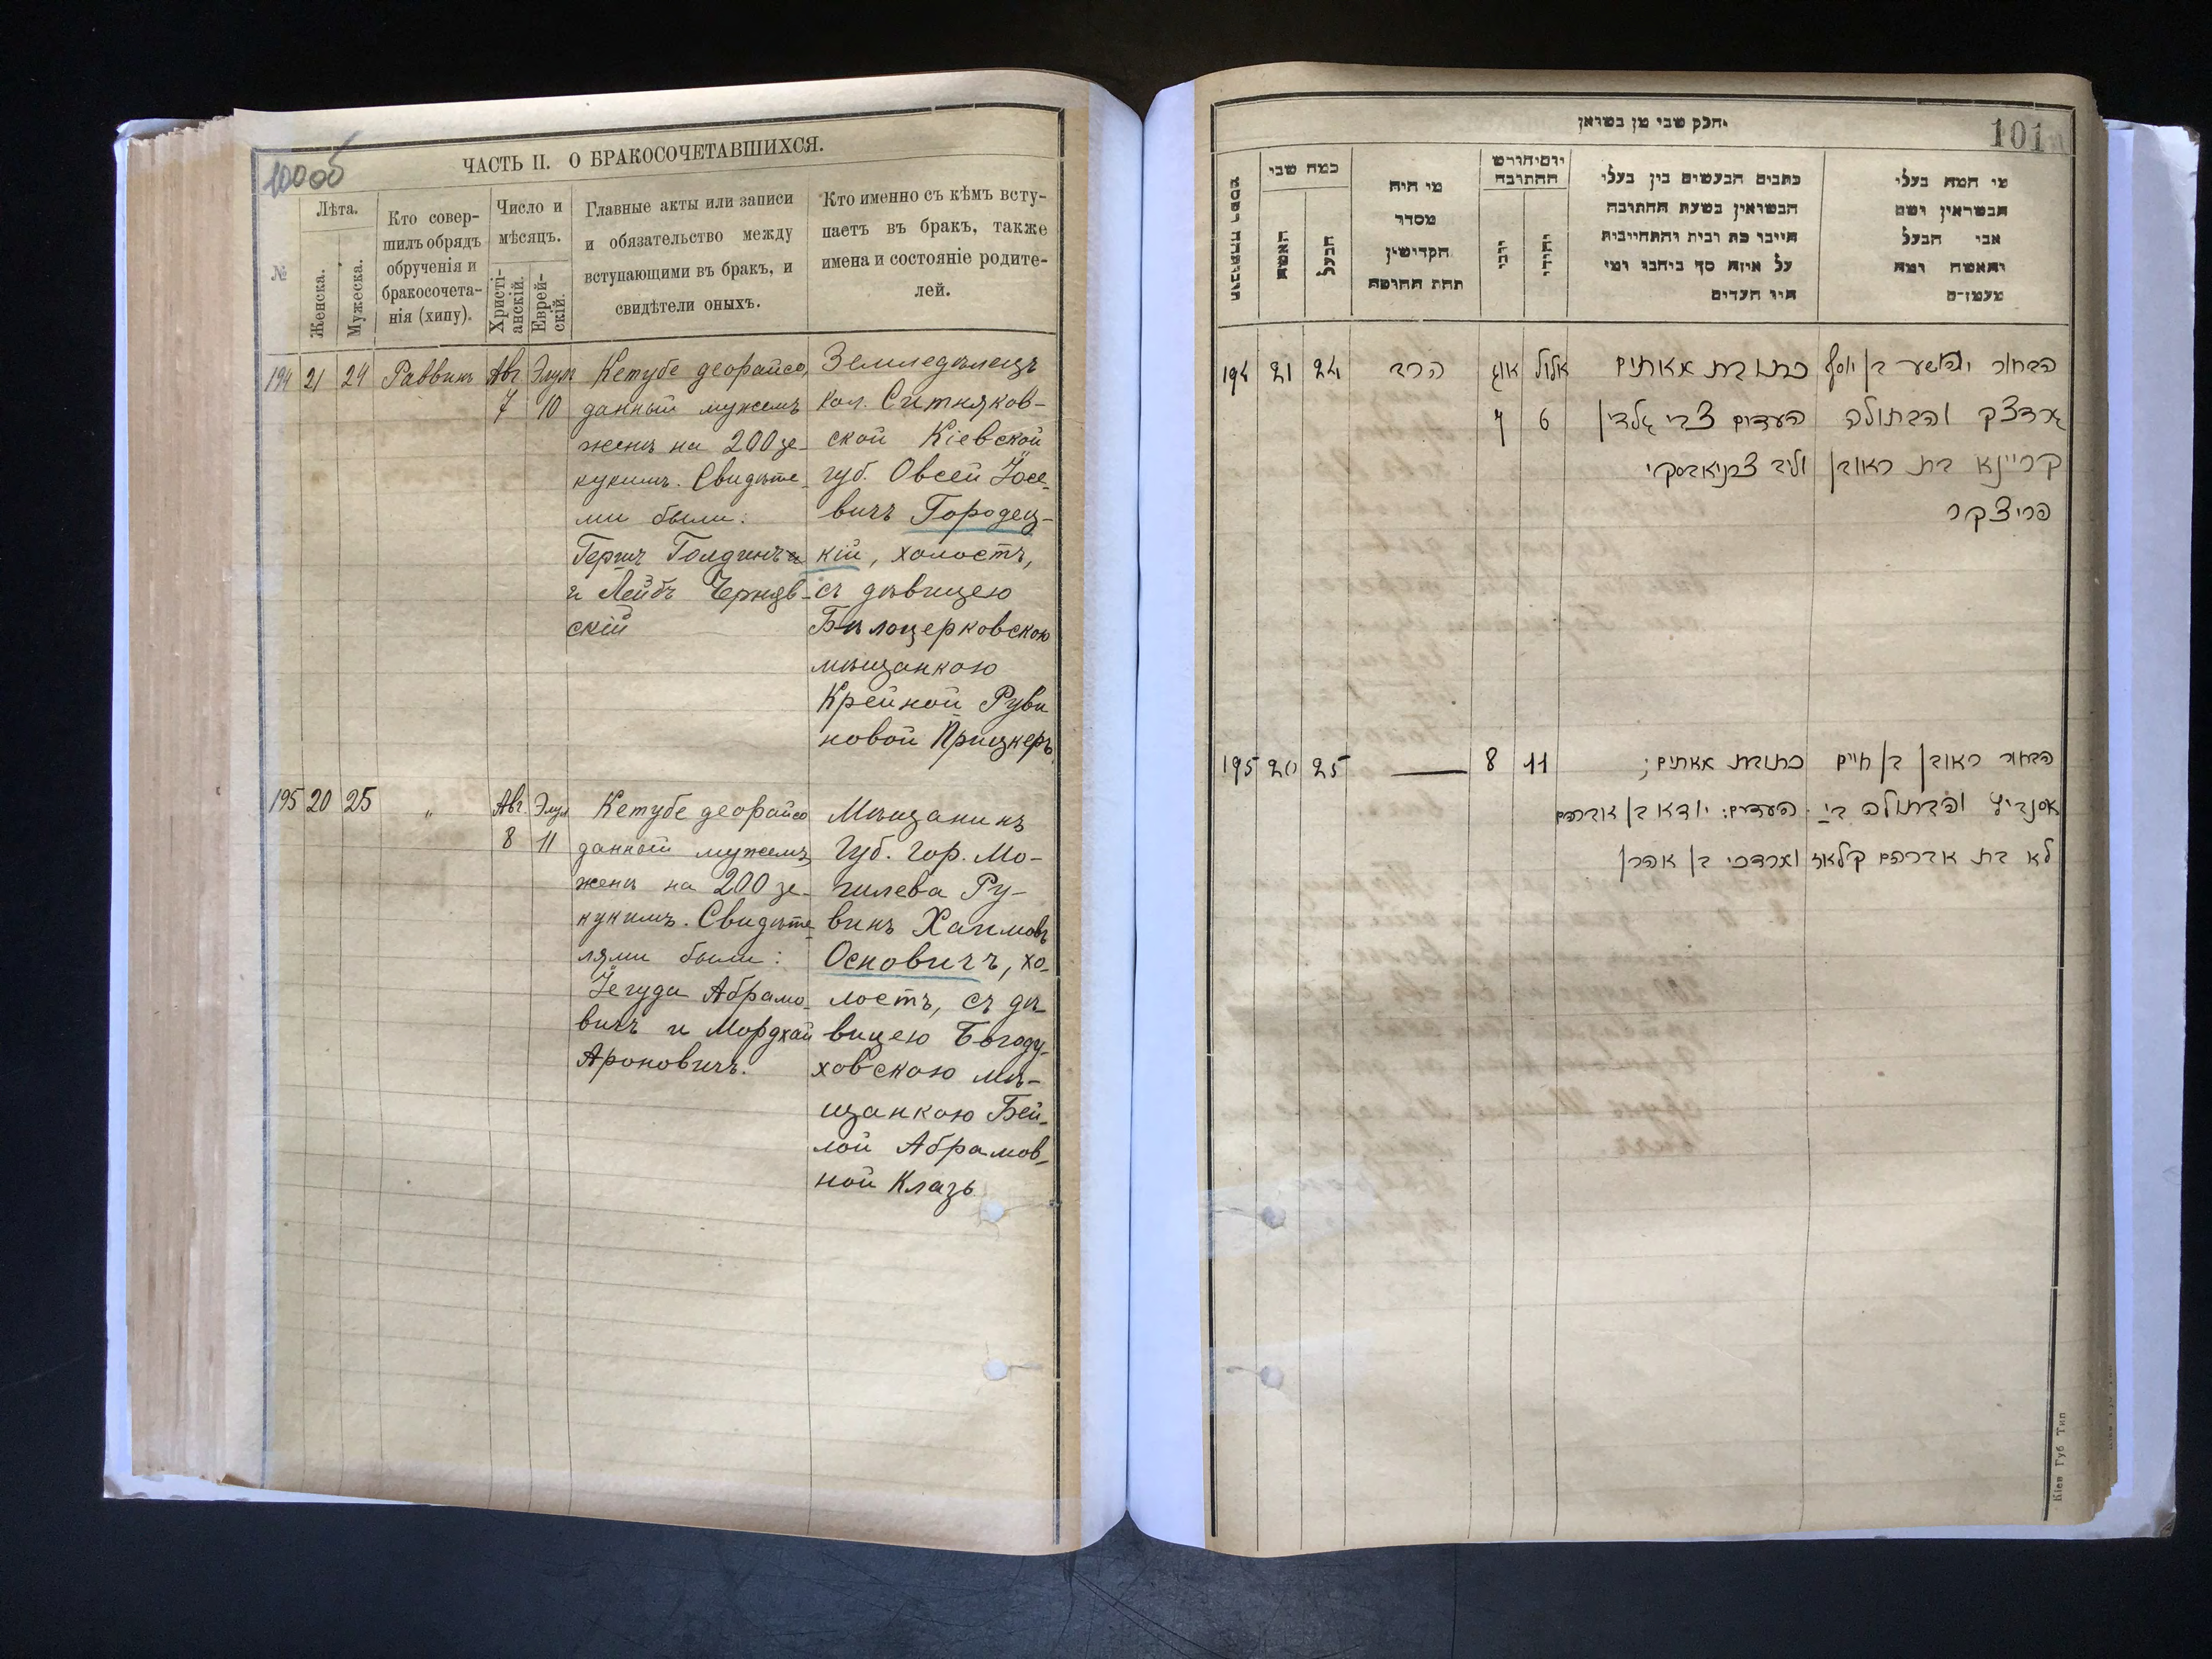 100об
ЧАСТЬ II. О БРАКОСОЧЕТАВШИХСЯ.
№
Лѣта.
Женска.
Мужеска.
Кто совер-
шилъ обрядъ
обрученія и
бракосочета-
нія (хипу).
Число и
мѣсяцъ.
Христі-
анскій.
Еврей-
скій.
Главные акты или записи
и обязательство между
вступающими въ бракъ, и
свидѣтели оныхъ.
Кто именно съ кѣмъ всту-
паетъ въ бракъ, также
имена и состояніе родите-
лей.
194 21 24 Раввинъ Авг. Элул
7 10
Кетубе деорайсо,
данный мужемъ
женѣ на 200 зе-
кукимъ. Свидѣте-
ми были:
Гершъ Голдинъ
и Лейбъ Черняв-
скій
Земледѣлецъ
кол. Ситняков-
ской Кіевской
губ. Овсей Іосе-
вичъ Городец-
кій, холостъ,
съ дѣвицею
Бѣлоцерковскою
мѣщанкою
Крейной Руви
новой Прицкеръ
195 20 25 " Авг. Элул
8 11
Кетубе деорайсо
данный мужемъ
женѣ на 200 зе-
кукимъ. Свидѣте-
лями были:
Іегуда Абрамо-
вичъ и Мордхай
Ароновичъ.
Мѣщанинъ
Губ. гор. Мо-
гилева Ру-
винъ Хаимовъ
Осповичъ, хо-
лостъ, съ дѣ-
вицею Богоду-
ховскою мѣ-
щанкою Бей-
лой Абрамов-
ной Клазъ
101
חלק שני מן נשואין
כמה שני
האשה
הבעל
מי היה
מסדר
הקדישין
תחת החופה
יום וחודש
החתונה
כתבים הנעשים בין בעלי
הנשואין בשעת החתונה
היינו כת ובית והתחייבות
על איזה סך ביחבו ומי
היו העדים
מי המה בעלי
הנשואין ושם
אבי הבעל
והאשה ומה
194 21 24 הרב אוג אלול
7 6
כתובת מאתים
העדים צבי גלדין
וליב צרניאבסקי
הבחור יהושע בן יוסף
גרדצק והבתולה
קריינא בת ראובן
פריצקר
195 20 25 — 8 11
כתובת מאתים;
העדים: יודא בן אברהם
ומרדכי בן אהרן
הבחור ראובן בן חיים
והבתולה ביי
לא בת אברהם קלאז
Кіев Губ Тип